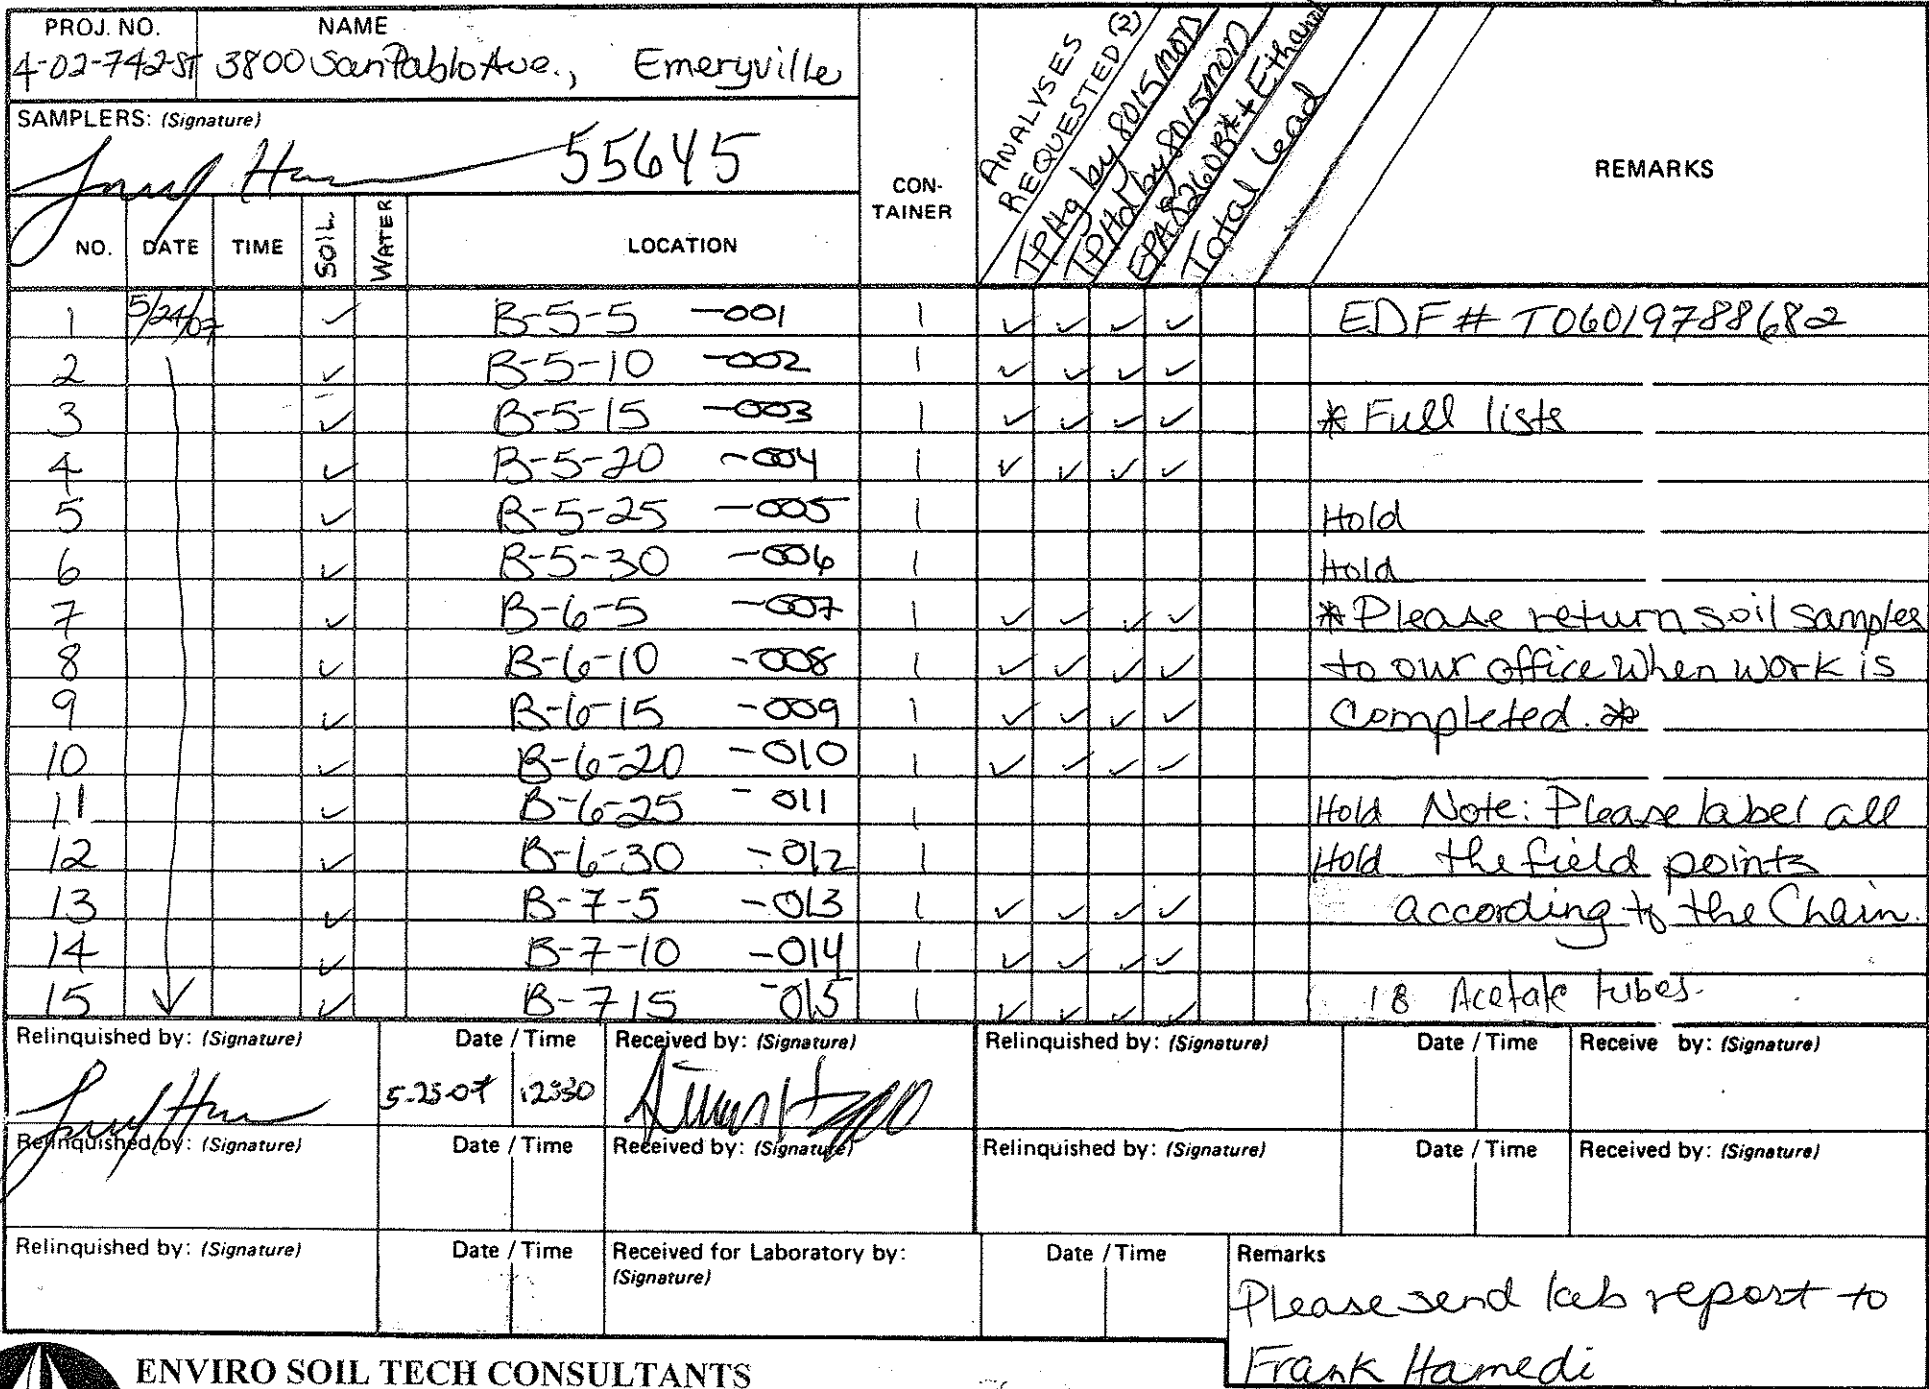 PROJ. NO. NAME
4-02-742-ST 3800 San Pablo Ave., Emeryville
SAMPLERS: (Signature)
55645
ANALYSES REQUESTED (2)
TPHg by 8015MOD
TPHd by 8015MOD
EPA 8260B* + Ethanol
Total Lead
NO. DATE TIME SOIL WATER LOCATION CON-TAINER REMARKS
1 5/24/07 ✓ B-5-5 -001 1 ✓ ✓ ✓ ✓ EDF # T0601978 8682
2 ✓ B-5-10 -002 1 ✓ ✓ ✓ ✓
3 ✓ B-5-15 -003 1 ✓ ✓ ✓ ✓ * Full lists
4 ✓ B-5-20 -004 1 ✓ ✓ ✓ ✓
5 ✓ B-5-25 -005 1 Hold
6 ✓ B-5-30 -006 1 Hold
7 ✓ B-6-5 -007 1 ✓ ✓ ✓ ✓ * Please return soil samples
8 ✓ B-6-10 -008 1 ✓ ✓ ✓ ✓ to our office when work is
9 ✓ B-6-15 -009 1 ✓ ✓ ✓ ✓ Completed. *
10 ✓ B-6-20 -010 1 ✓ ✓ ✓ ✓
11 ✓ B-6-25 -011 1 Hold Note: Please label all
12 ✓ B-6-30 -012 1 Hold the field points
13 ✓ B-7-5 -013 1 ✓ ✓ ✓ ✓ according to the Chain.
14 ✓ B-7-10 -014 1 ✓ ✓ ✓ ✓
15 ✓ B-7 15 -015 1 ✓ ✓ ✓ ✓ 18 Acetate tubes.
Relinquished by: (Signature) Date / Time Received by: (Signature) Relinquished by: (Signature) Date / Time Receive by: (Signature)
5-25-07 12:30
Relinquished by: (Signature) Date / Time Received by: (Signature) Relinquished by: (Signature) Date / Time Received by: (Signature)
Relinquished by: (Signature) Date / Time Received for Laboratory by: (Signature) Date / Time Remarks
Please send lab report to
Frank Hamedi
ENVIRO SOIL TECH CONSULTANTS